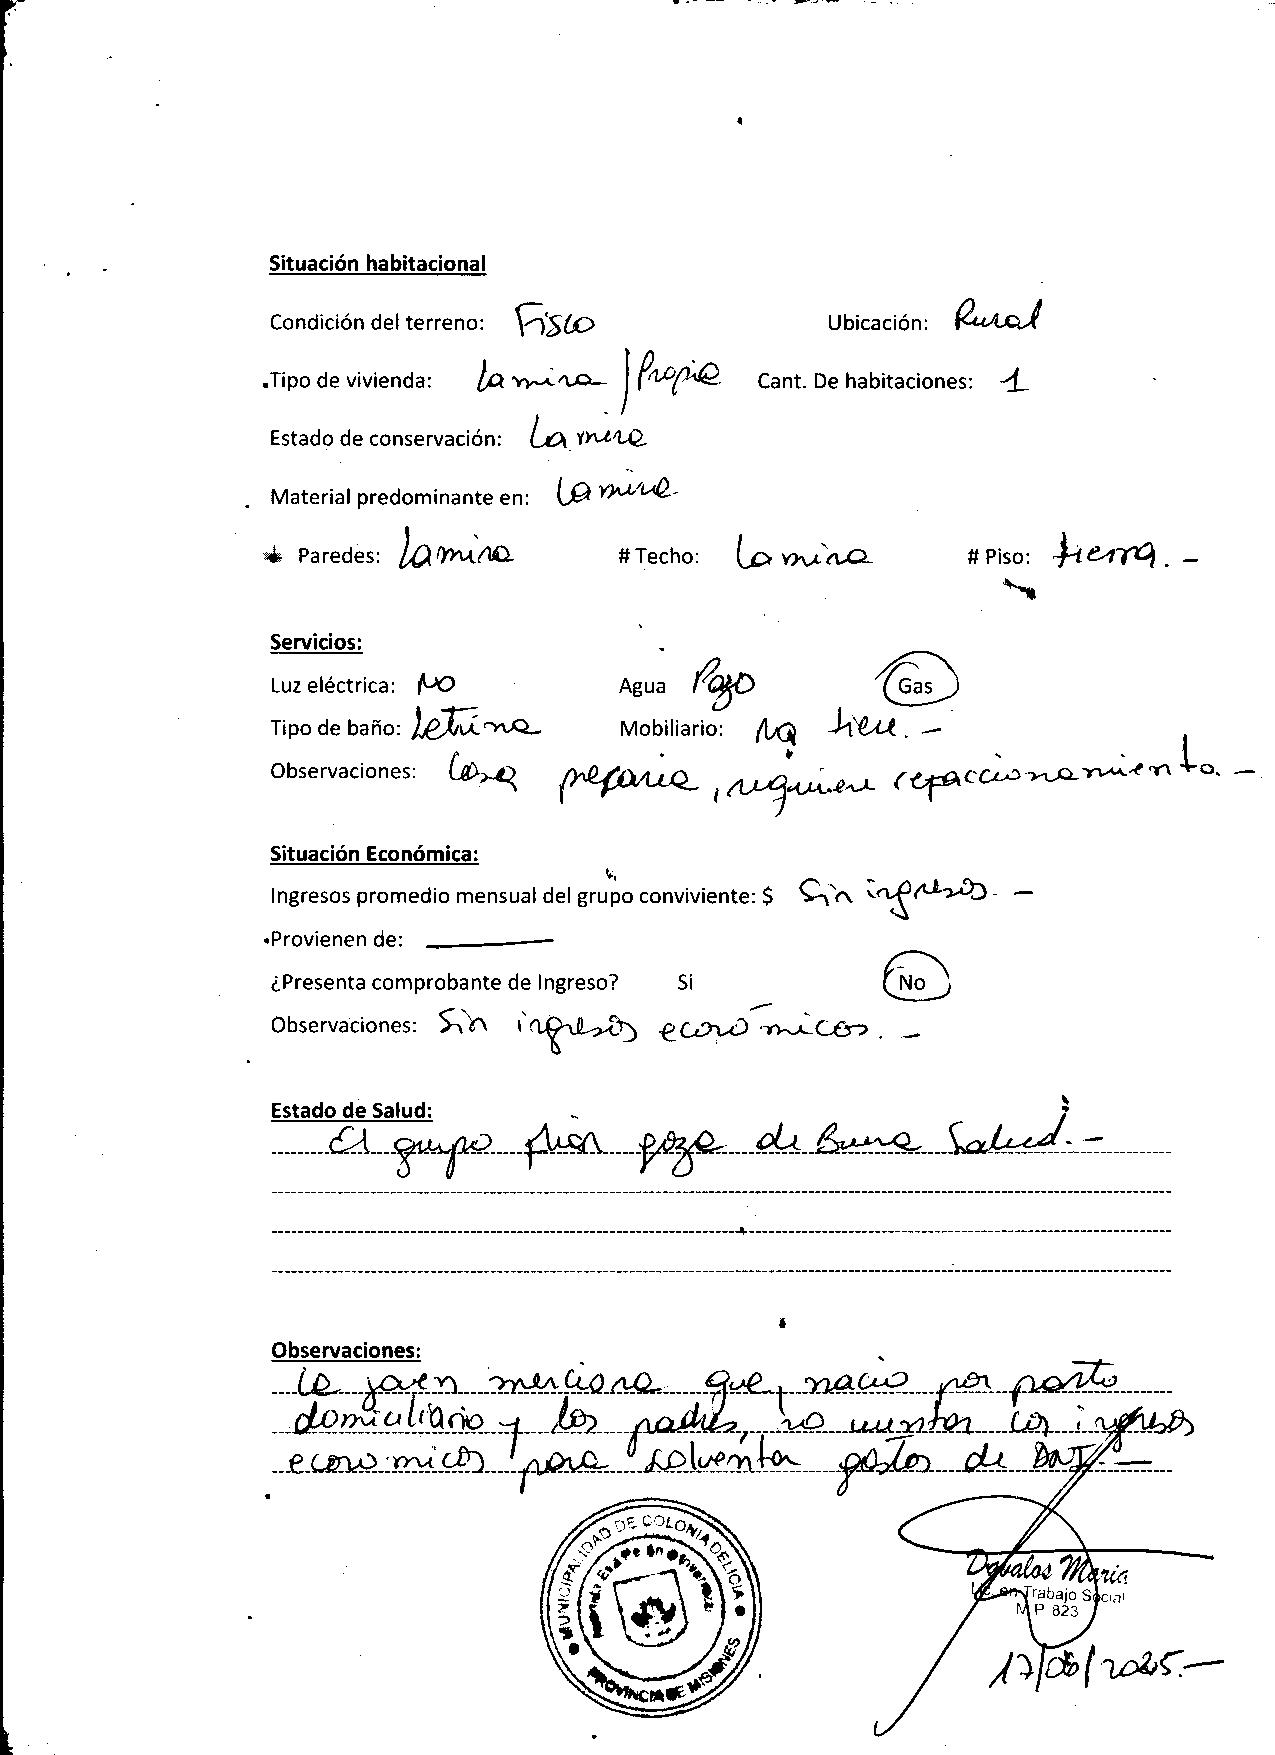 Situación habitacional
Condición del terreno: Fisco Ubicación: Rural
Tipo de vivienda: Lamina / Propia Cant. De habitaciones: 1
Estado de conservación: Lamina
Material predominante en: Lamina
Paredes: Lamina # Techo: Lamina # Piso: tierra. -
Servicios:
Luz eléctrica: NO Agua Pozo Gas
Tipo de baño: Letrina Mobiliario: No tiene. -
Observaciones: Casa precaria, requiere refaccionamiento. -
Situación Económica:
Ingresos promedio mensual del grupo conviviente: $ Sin ingresos. -
Provienen de: ————
¿Presenta comprobante de Ingreso? Si No
Observaciones: Sin ingresos económicos. -
Estado de Salud:
El grupo flian goza de Buena Salud. -
Observaciones:
La joven menciona que, nacio por parto
domiciliario y los padres, no cuentan con ingresos
economicos para solventar gastos de DNI. -
MUNICIPALIDAD DE COLONIA DELICIA
PROVINCIA DE MISIONES
Dávalos María
Lic. en Trabajo Social
M P 823
17/06/2025. -